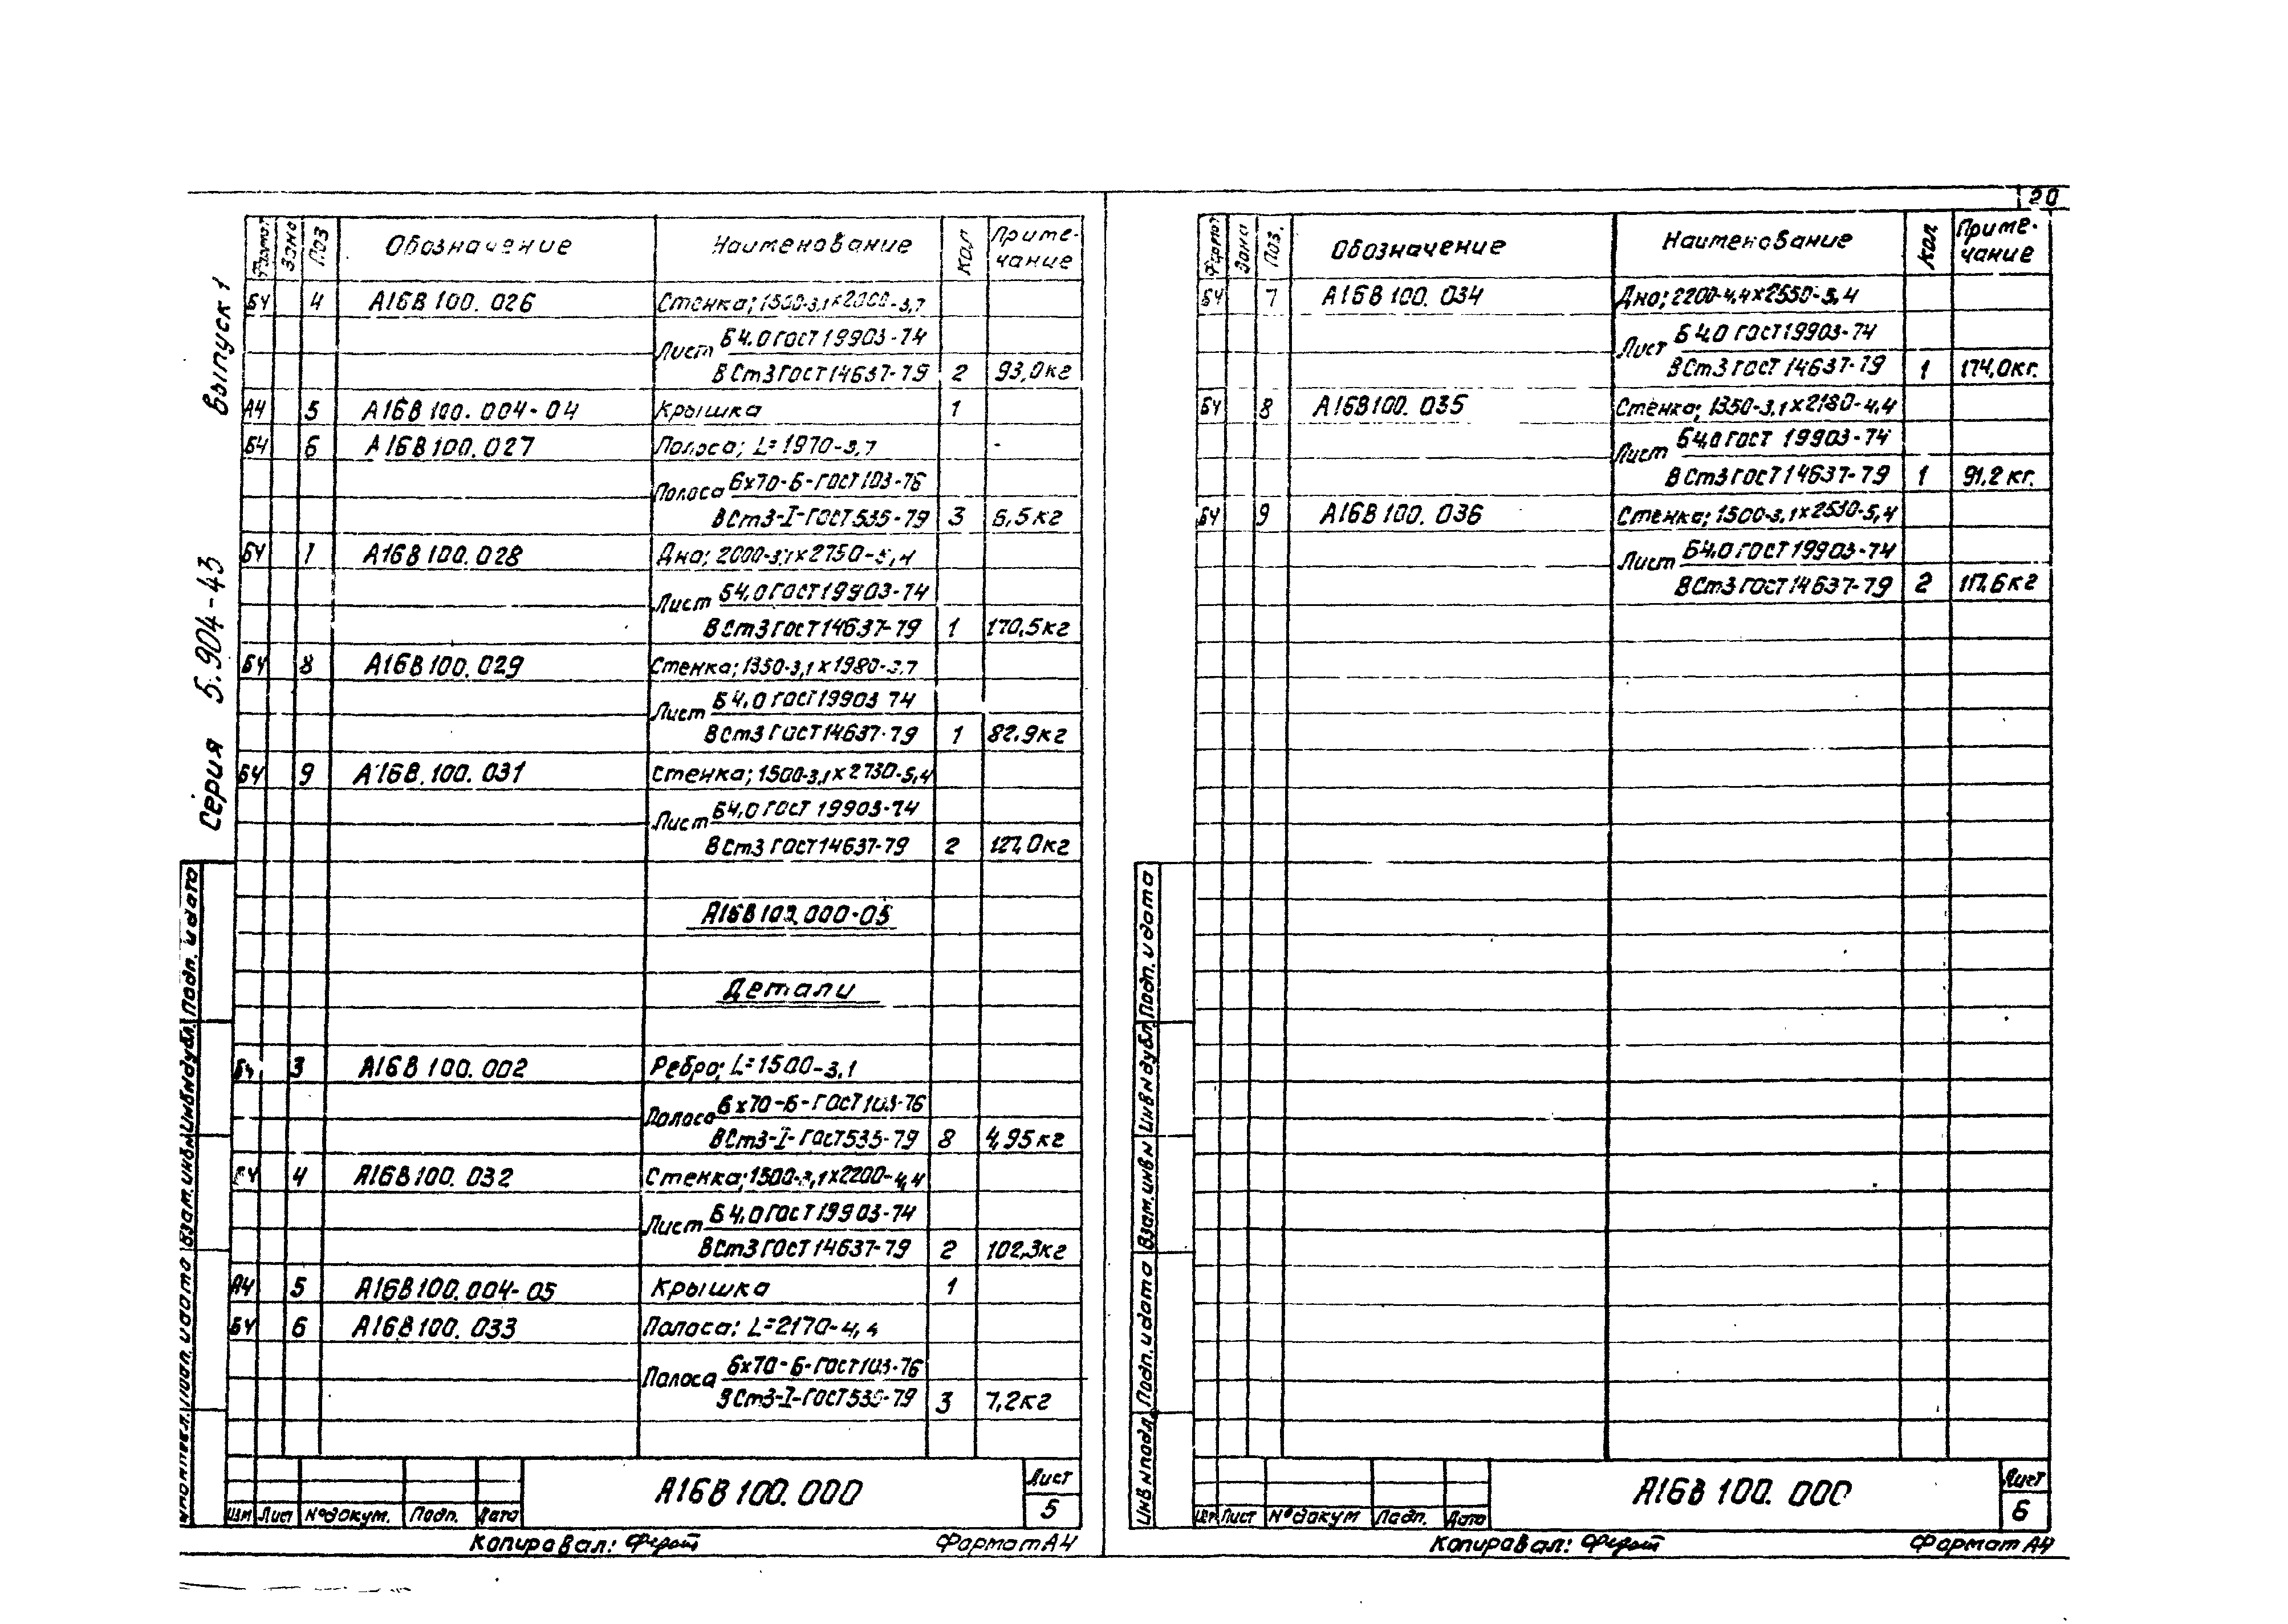 20
Выпуск 1
Серия 5.904-43
Формат Зона Поз Обозначение Наименование Кол Приме-
чание
БЧ 4 А16В 100. 026 Стенка; 1500-3,1×2000-3,7
Лист Б 4.0 ГОСТ 19903-74
ВСт3 ГОСТ 14637-79 2 93,0кг
А4 5 А16В 100. 004-04 Крышка 1
БЧ 6 А16В 100. 027 Полоса; L=1970-3,7
Полоса 6х70-Б-ГОСТ 103-76
ВСт3-I-ГОСТ 535-79 3 6,5кг
БЧ 7 А16В 100. 028 Дно; 2000-3,1×2750-5,4
Лист Б4.0 ГОСТ 19903-74
ВСт3 ГОСТ 14637-79 1 170,5кг
БЧ 8 А16В 100. 029 Стенка; 1350-3,1×1980-3,7
Лист Б 4.0 ГОСТ 19903 74
ВСт3 ГОСТ 14637-79 1 82.9кг
БЧ 9 А16В. 100. 031 Стенка; 1500-3,1×2730-5,4
Лист Б4,0 ГОСТ 19903-74
ВСт3 ГОСТ 14637-79 2 127,0кг
А16В 100.000-05
Детали
БЧ 3 А16В 100. 002 Ребро; L=1500-3,1
Полоса 6х70-Б-ГОСТ 103-76
ВСт3-I-ГОСТ 535-79 8 4,95кг
БЧ 4 А16В 100. 032 Стенка; 1500-3,1×2200-4,4
Лист Б 4,0 ГОСТ 19903-74
ВСт3 ГОСТ 14637-79 2 102,3кг
А4 5 А16В 100. 004-05 Крышка 1
БЧ 6 А16В 100. 033 Полоса; L=2170-4,4
Полоса 6х70-Б-ГОСТ 103-76
ВСт3-I-ГОСТ 535-79 3 7,2кг
Подп. и дата
Инв.№дубл.
Взам.инв.№
Подп. и дата
Изм Лист №докум. Подп. Дата
А16В 100. 000
Лист
5
Копировал:
Формат А4
Формат Зона Поз. Обозначение Наименование Кол Приме-
чание
БЧ 7 А16В 100. 034 Дно; 2200-4,4×2550-5,4
Лист Б 4,0 ГОСТ 19903-74
ВСт3 ГОСТ 14637-79 1 174,0кг.
БЧ 8 А16В 100. 035 Стенка; 1350-3,1×2180-4,4
Лист Б4,0 ГОСТ 19903-74
ВСт3 ГОСТ 14637-79 1 91,2 кг.
БЧ 9 А16В 100. 036 Стенка; 1500-3,1×2530-5,4
Лист Б4,0 ГОСТ 19903-74
ВСт3 ГОСТ 14637-79 2 117,6кг
Подп. и дата
Инв №дубл
Взам. инв №
Подп. и дата
Инв №подл.
Изм Лист №докум Подп. Дата
А16В 100. 000
Лист
6
Копировал:
Формат А4